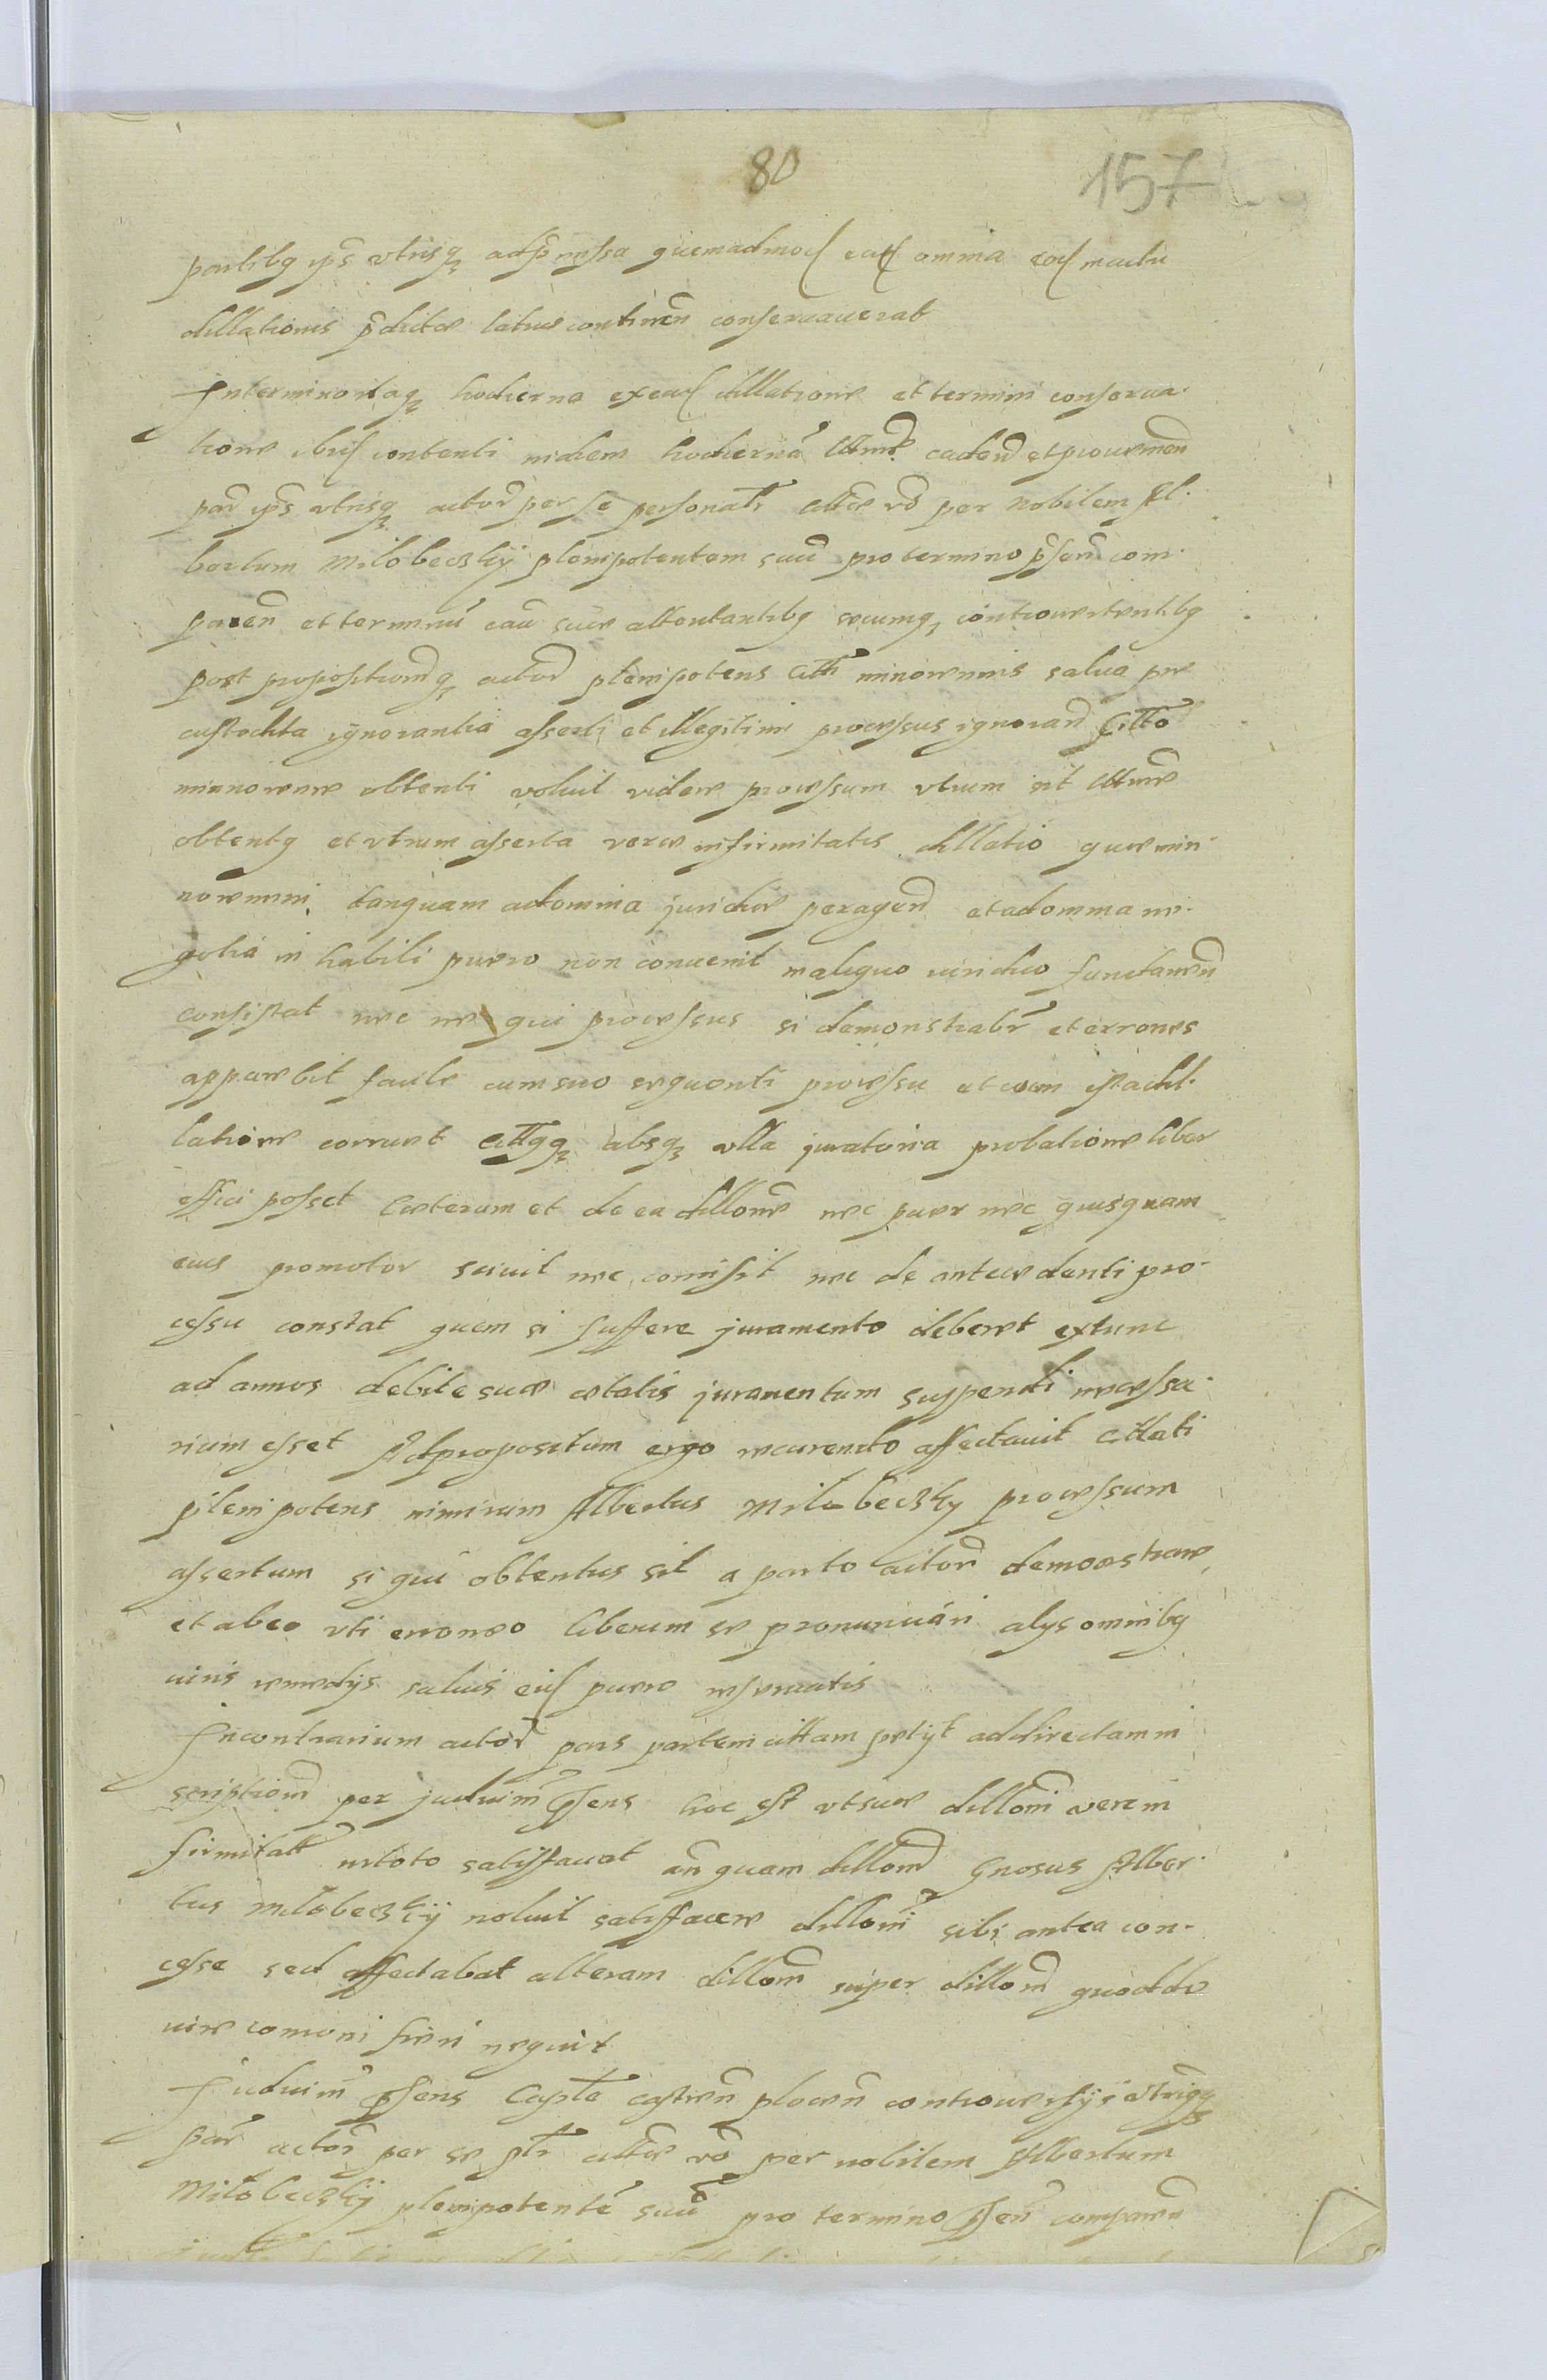 80
157
partibg ips vtrisq adpmissa quemadmod ead omnia eod in actu
dillationis pdictae latius continen conseruauerat
In termino itaq hodierna ex ead dillatione et termini conserua-
tione ibid contenti in diem hodierna lttime caden et prouenien
par ips vtrisq actor per se personalr citte vo per nobilem Al-
bertum Milobeczky plenipotentem suu pro termino psen com-
paren et terminu cau suae attentantibg secumq controuertentibg
post propositionq actor plenipotens citti minorennis salua prae
custodita ignorantia asserti et illegitime processus ignoran citto
minnorenne obtenti voluit videre processum vtrum sit lttime
obtentg et vtrum asserta verae infirmitatis dillatio quae min-
norenni tanquam ad omnia juridice peragen et ad omnia ne-
gotia in habili puero non conuenit in aliquo iuridico fundamen
consistat nec ne qui processus si demonstrabr et erroneus
apparebit facile cum suo sequenti processu et cum ista dil-
latione corruet cittgq absq vlla juratoria probatione liber
effici posset Caeterum et de ea dillone nec puer nec quisquam
eius promotor sciuit nec comisit nec de antecedenti pro-
cessu constat quem si suffere juramento deberet extunc
ad annos debite suae aetatis juramentum suspendi necessa-
rium esset Ad propositum ergo recurendo affectauit cittati
plenipotens nimirum Albertus Milobeczky processum
assertum si qui obtentus sit a parte actor demonstrare
et ab eo vti erroneo liberum se pronunciari alys omnibg
iuris remedys saluis eid puero reseruatis
In contrarium actor pars partem cittam petyt ad directam in
scription per judicium psens hoc est vt suae dilloni vere in
firmitatis in toto satisfaciat an quam dillon Gnosus Alber-
tus Milobeczkij noluit satisfacere dilloni sibi antea con-
cesse sed affectabat alteram dillom super dillom quod de
iure comuni fieri nequit
Judicium psens Captle castren plocen controuersijs vtriq
par actor per se plr citte vo per nobilem Albertum
Milobeczkij plenipotente suu pro termino psen comparen